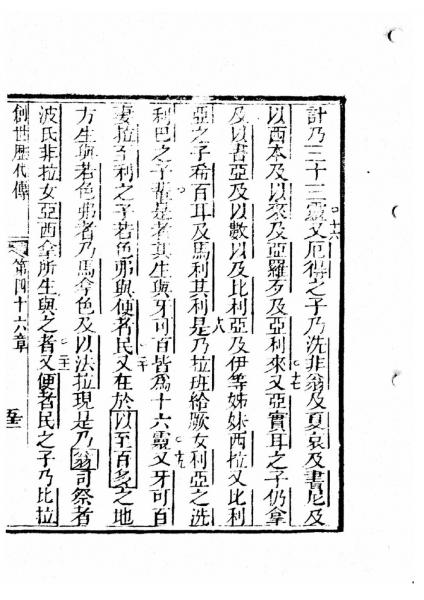 計乃三十三靈又厄得之子乃洗非翁及夏哀及書尼及
以西本及以來及亞羅歹及亞利來又亞實耳之子仍拿
及以書亞及以數以及比利亞及伊等姊妹西拉又比利
亞之子希百耳及馬利其利是乃拉班給厥女利亞之洗
利巴之子輩是者其生與牙可百皆為十六靈又牙可百
妻拉至利之子若色弗與便者民又在於以至百多之地
方生與若色弗者乃馬拿色及以法拉現是乃翁司祭者
波氏非拉女亞西拿所生與之者又便者民之子乃比拉
創世歷代傳 第四十六章 五十三